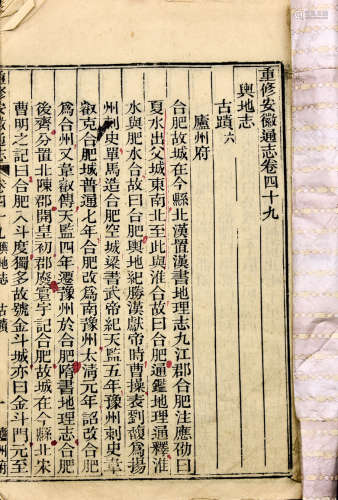 重修安徽通志卷四十九
輿地志
古蹟六
廬州府
合肥故城在今縣北漢置漢書地理志九江郡合肥注應劭曰
夏水出父城東南北至此與淮合故曰合肥通鑑地理通釋淮
水與肥水合故曰合肥輿地紀勝漢獻帝時曹操表劉馥為揚
州刺史單馬造合肥空城梁書武帝紀天監五年豫州刺史韋
叡克合肥城普通七年合肥改為南豫州太清元年詔改合肥
為合州又韋叡傳天監四年遷豫州於合肥隋書地理志合肥
後齊分置北陳郡開皇初郡廢寰宇記合肥故城在今縣北宋
曹明之記曰合肥入斗度獨多故號金斗城亦曰金斗門元至
重修安徽通志
卷四十九輿地志
古蹟
一
廬州府